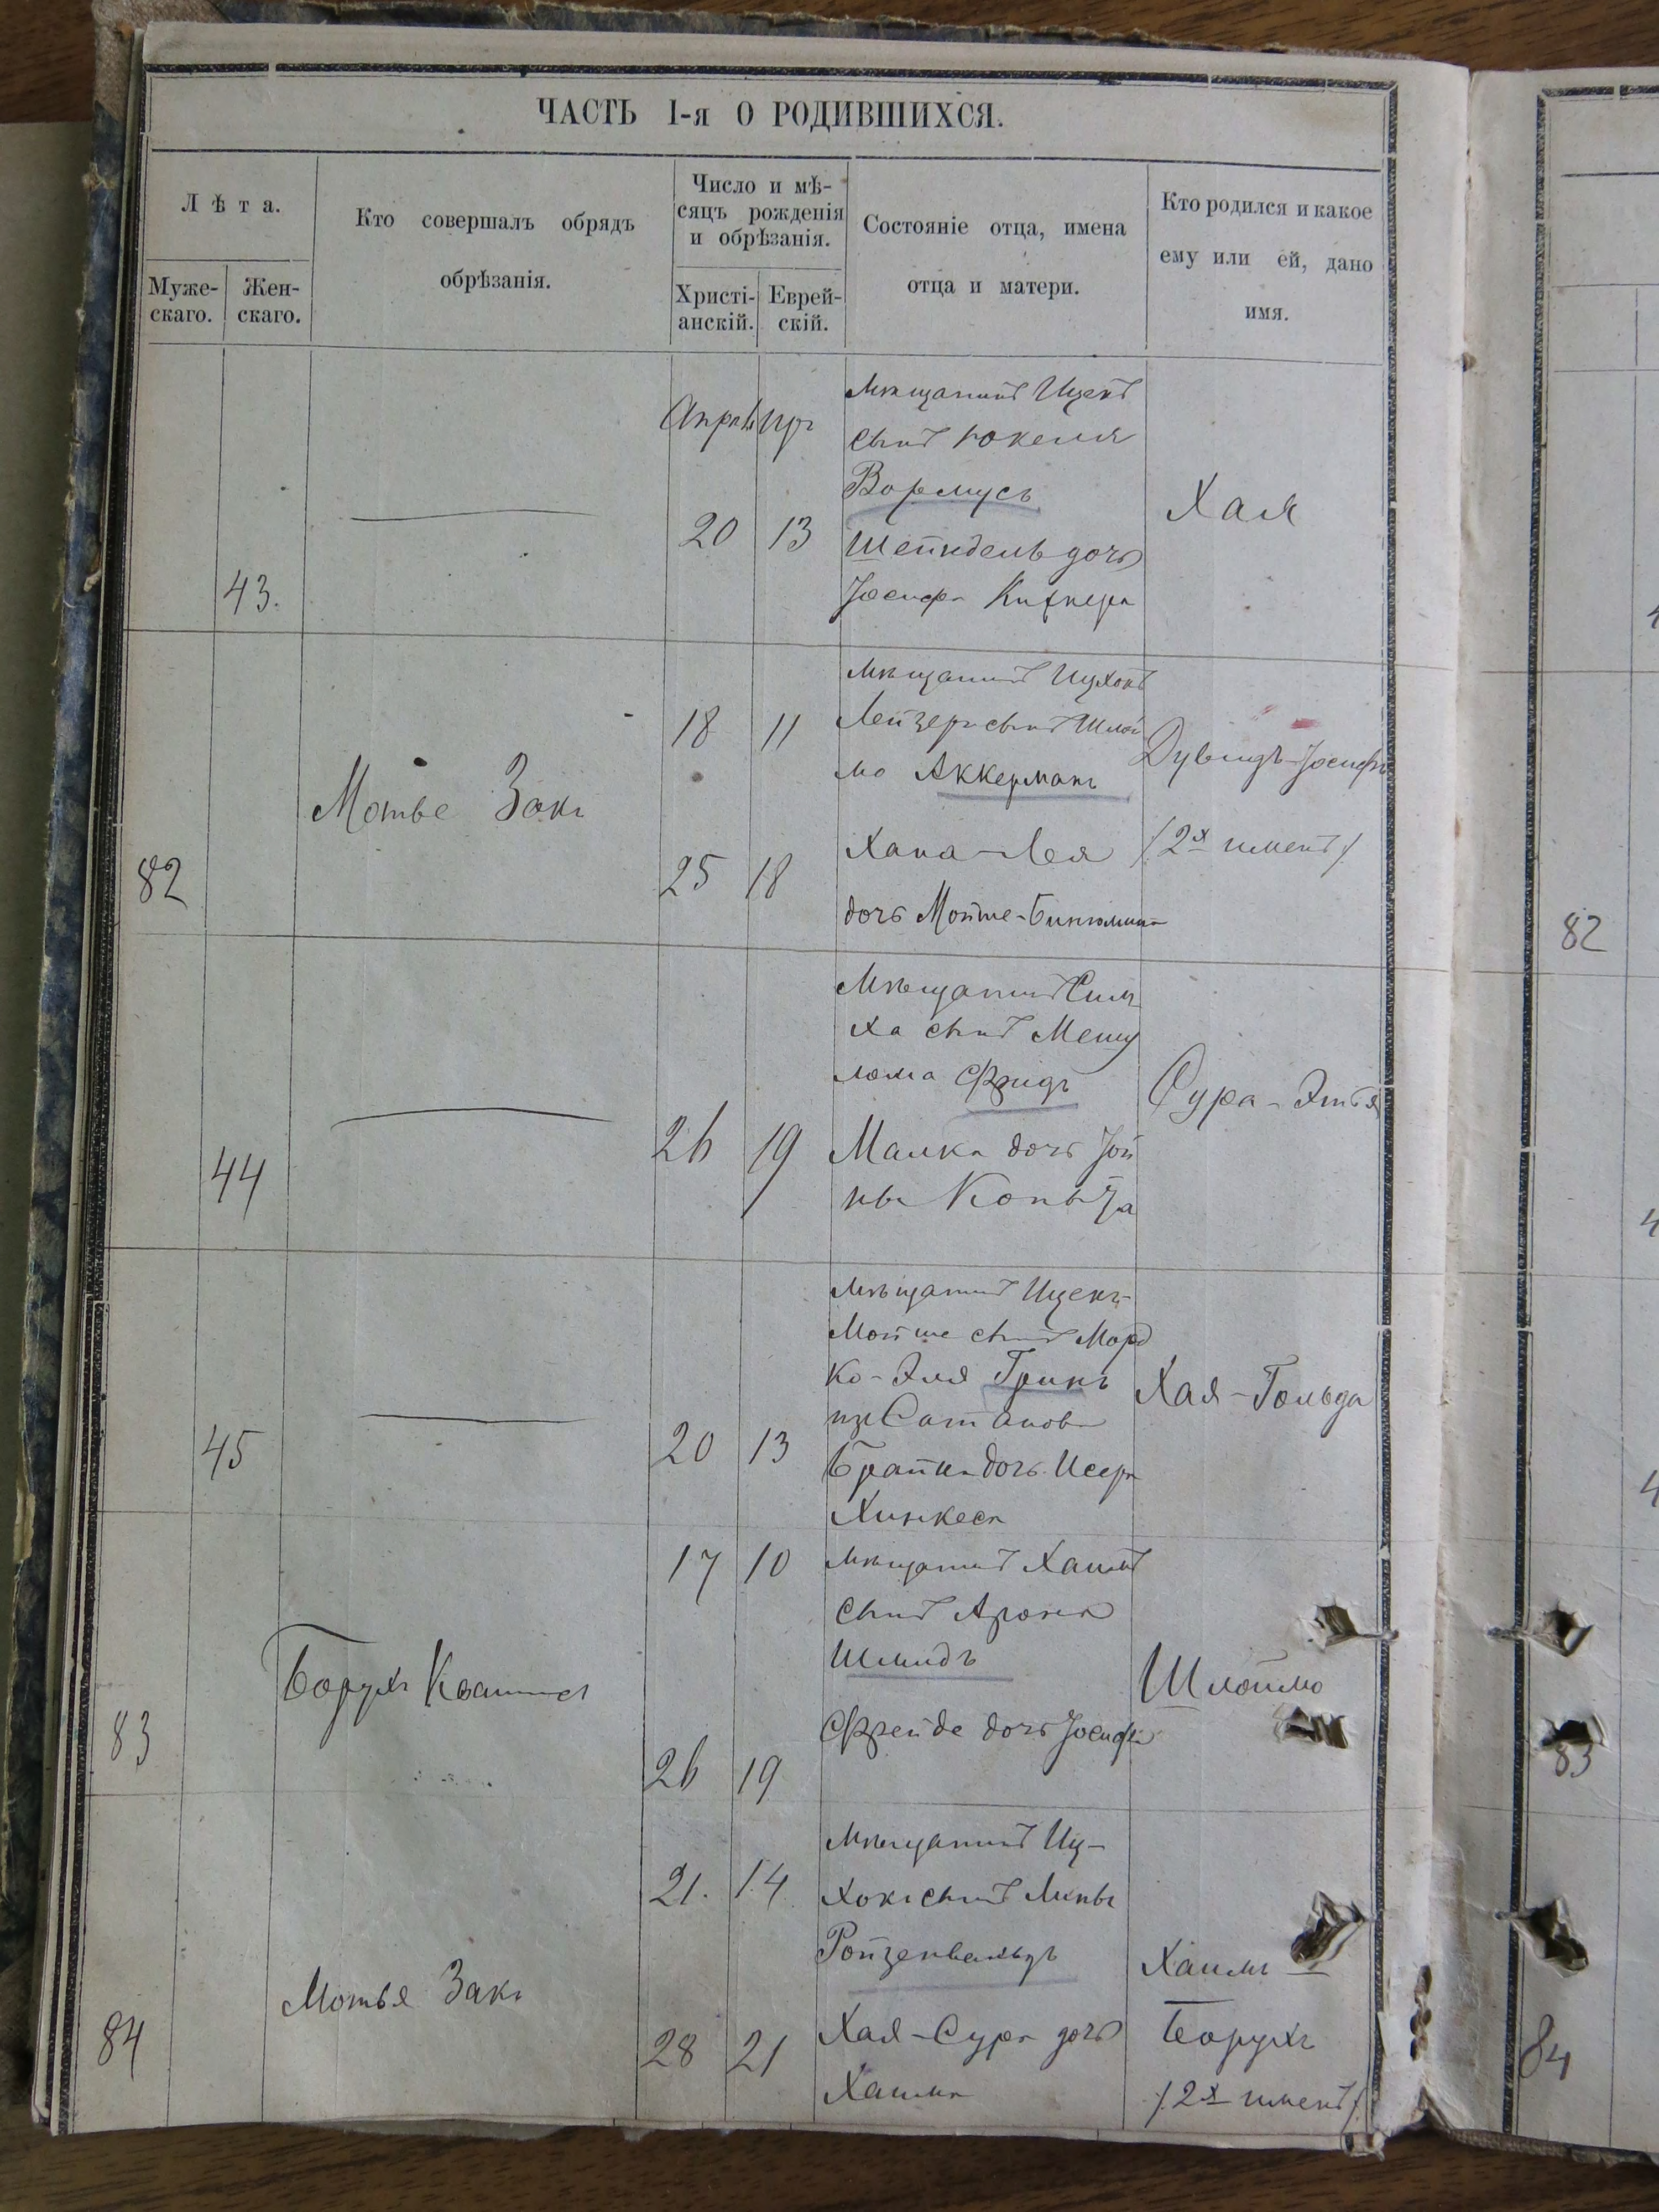 ЧАСТЬ I-я О РОДИВШИХСЯ.
Лѣта.
Муже-
скаго.
Жен-
скаго.
Кто совершалъ обрядъ
обрѣзанія.
Число и мѣ-
сяцъ рожденія
и обрѣзанія.
Христі-
анскій.
Еврей-
скій.
Состояніе отца, имена
отца и матери.
Кто родился и какое
ему или ей, дано
имя.
43.
20
13
мѣщанинъ Ицекъ
сынъ Юкеля
Вормусъ
Шейндель дочь
Іосифа
Хая
82
Мотье Закъ
18
11
25
18
мѣщанинъ Ицхокъ
Лейзеръ сынъ Шлой
мо Аккерманъ
Хана-Лея
дочь Мойше-Бинюмина
Дувидъ-Іосифъ
/2х именъ/
44
26
19
Мѣщанинъ Сим
ха сынъ Мешу
лома Фридъ
Малка дочь Іой
ны
Сура-Этья
45
20
13
мѣщанинъ Ицекъ-
Мойше сынъ Морд
ко-Эля Гринъ
изъ Сатанова
Брайна дочь Исера
Хинкеса
Хая-Гольда
83
Борухъ
17
10
26
19
мѣщанинъ Хаимъ
сынъ Арона
Шмидъ
Фрейде дочь Іосифа
Шлоймо
84
Мотья Закъ
21.
14
28
21
Мѣщанинъ Иц-
хокъ сынъ Липы
Ройзенвальдъ
Хая-Сура дочь
Хаима
Хаимъ-
Борухъ
/2х именъ/
82
83
84